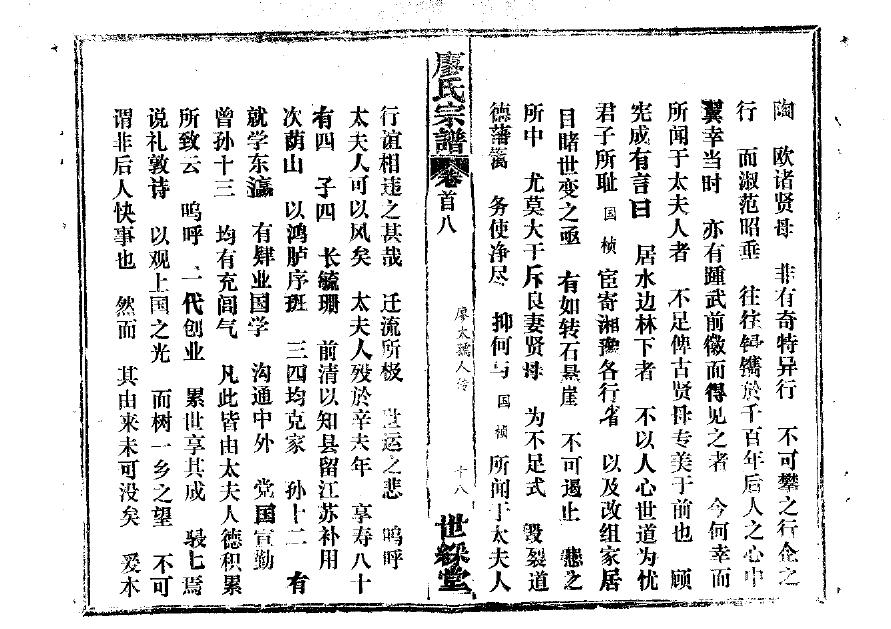 陶 欧诸贤母 非有奇特异行 不可攀之行企之
行 而淑范昭垂 往往镌于千百年后人之心中
翼幸当时 亦有踵武前徽而得见之者 今何幸而
所闻于太夫人者 不足俾古贤母专美于前也 顾
宪成有言曰 居水边林下者 不以人心世道为忧
君子所耻 国桢 宦寄湘豫各行省 以及改组家居
目睹世变之亟 有如转石悬崖 不可遏止 悲之
所中 尤莫大于斥良妻贤母 为不足式 毁裂道
德藩篱 务使净尽 抑何与 国桢 所闻于太夫人
廖氏宗谱 卷首八 廖太孺人传 十八 世綵堂
行谊相违之甚哉 迁流所极 世运之悲 呜呼
太夫人可以风矣 太夫人殁於辛未年 享寿八十
有四 子四 长毓珊 前清以知县留江苏补用
次荫山 以鸿胪序班 三四均克家 孙十二 有
就学东瀛 有肄业国学 沟通中外 党国宣勤
曾孙十三 均有充闾气 凡此皆由太夫人德积累
所致云 呜呼 一代创业 累世享其成 最七焉
说礼敦诗 以观上国之光 而树一乡之望 不可
谓非后人快事也 然而 其由来未可没矣 爰木